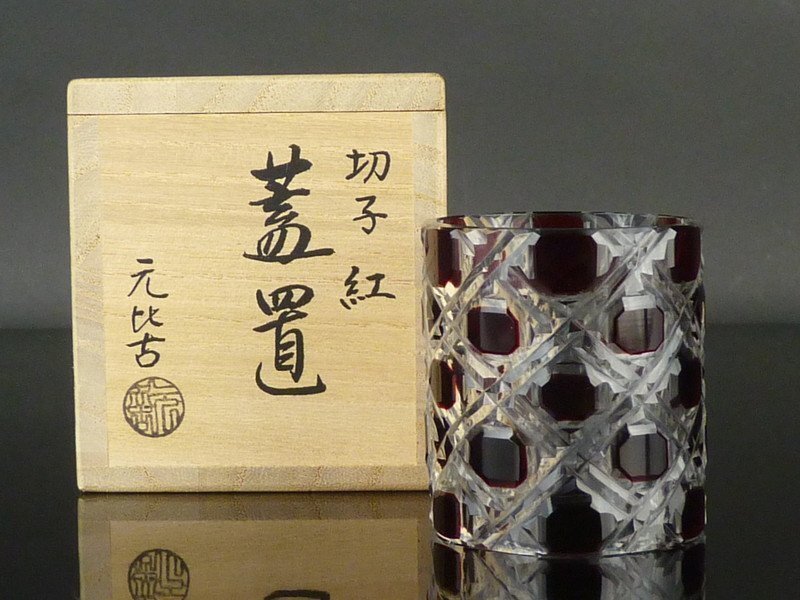 切子 紅
蓋置
元比古